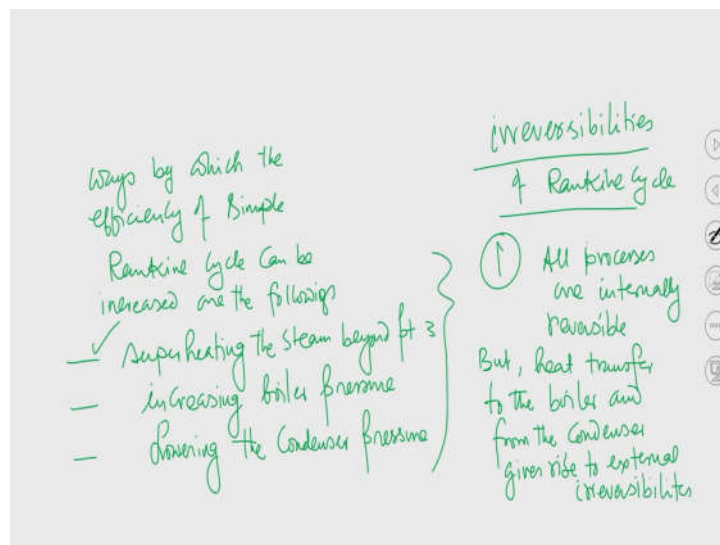 ways by which the
efficiency of Simple
Rankine Cycle Can be
increased are the followings
— ✓ superheating the steam beyond pt 3
— increasing boiler pressure
— lowering the Condenser pressure
irreversibilities
of Rankine Cycle
① All processes
are internally
reversible
But, heat transfer
to the boiler and
from the Condenser
gives rise to external
irreversibilites